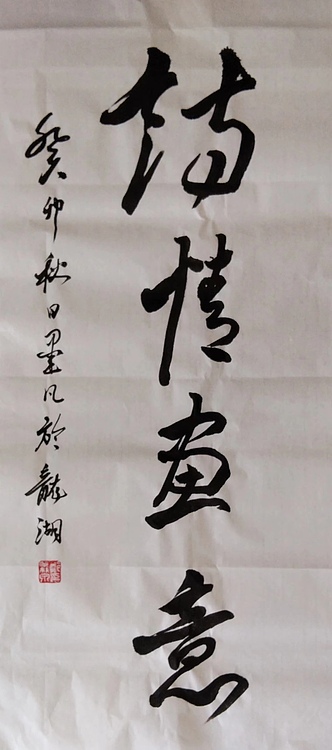 诗情画意
癸卯秋日墨凡於龍湖